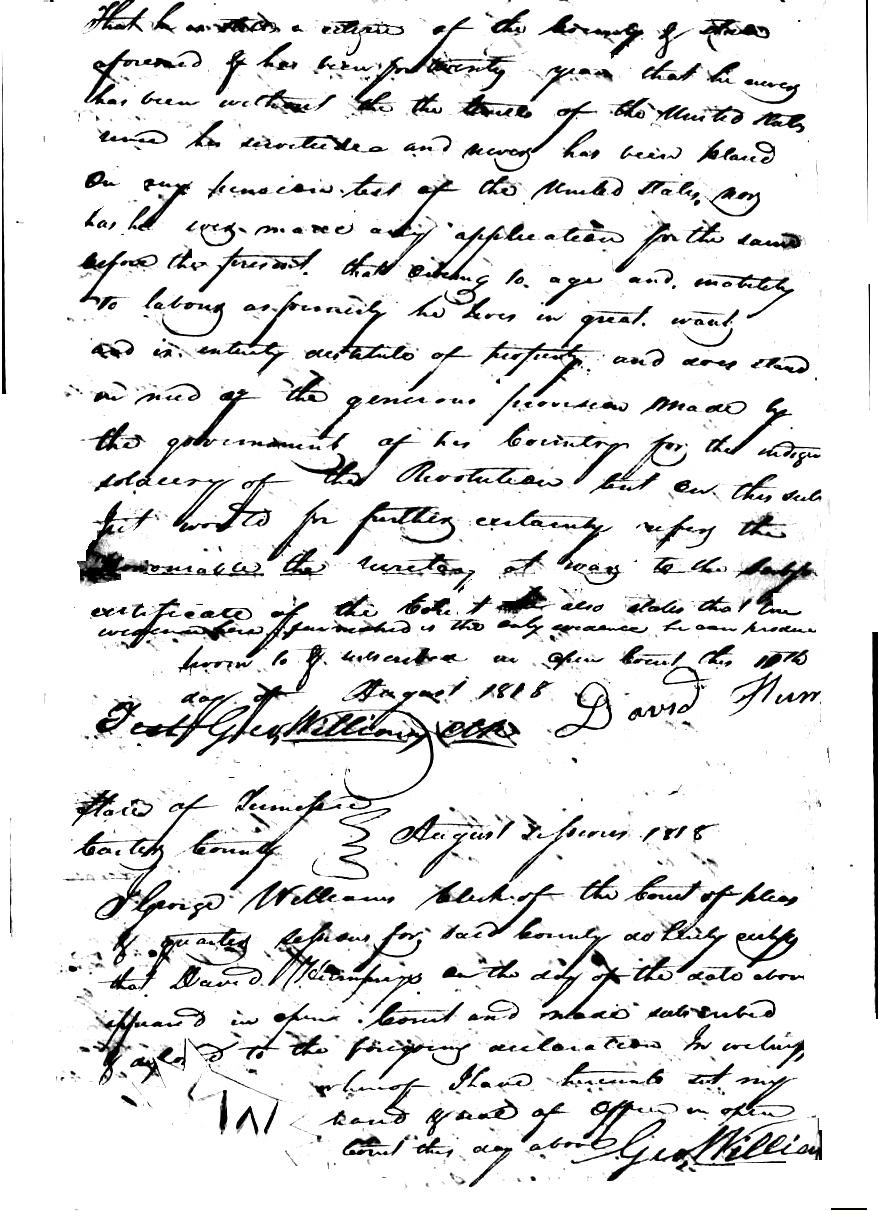 That he is a citizen of the County & State
aforesaid & has been for twenty years that he never
has been without the the limits of the United States
since his and never has been placed
on any pension list of the United States, nor
has he ever made any application for the same
before the present. that owing to age and inability
to labour as formerly he lives in great want
and is entirely destitute of property and does stand
in need of the generous provision made by
the government of his Country for the indigen
soldiery of the Revolution but on this sub
ject would for further certainty refer the
Honourable the Secretary at war to the
certificate of the Court also states that the
furnished is the only evidence he can produce
sworn to & subscribed in open Court this 10th
day of August 1818 David
Test Geo, Williams Clk
State of Tennessee
Carter County August Sessions 1818
I George Williams Clerk of the Court of pleas
& quarter sessions for said County do hereby certify
that David on the day of the date above
appeared in open Court and made subscribed
& to the foregoing declaration In
whereof I have hereunto set my
hand & seal of Office in open
Court this day above Geo, William